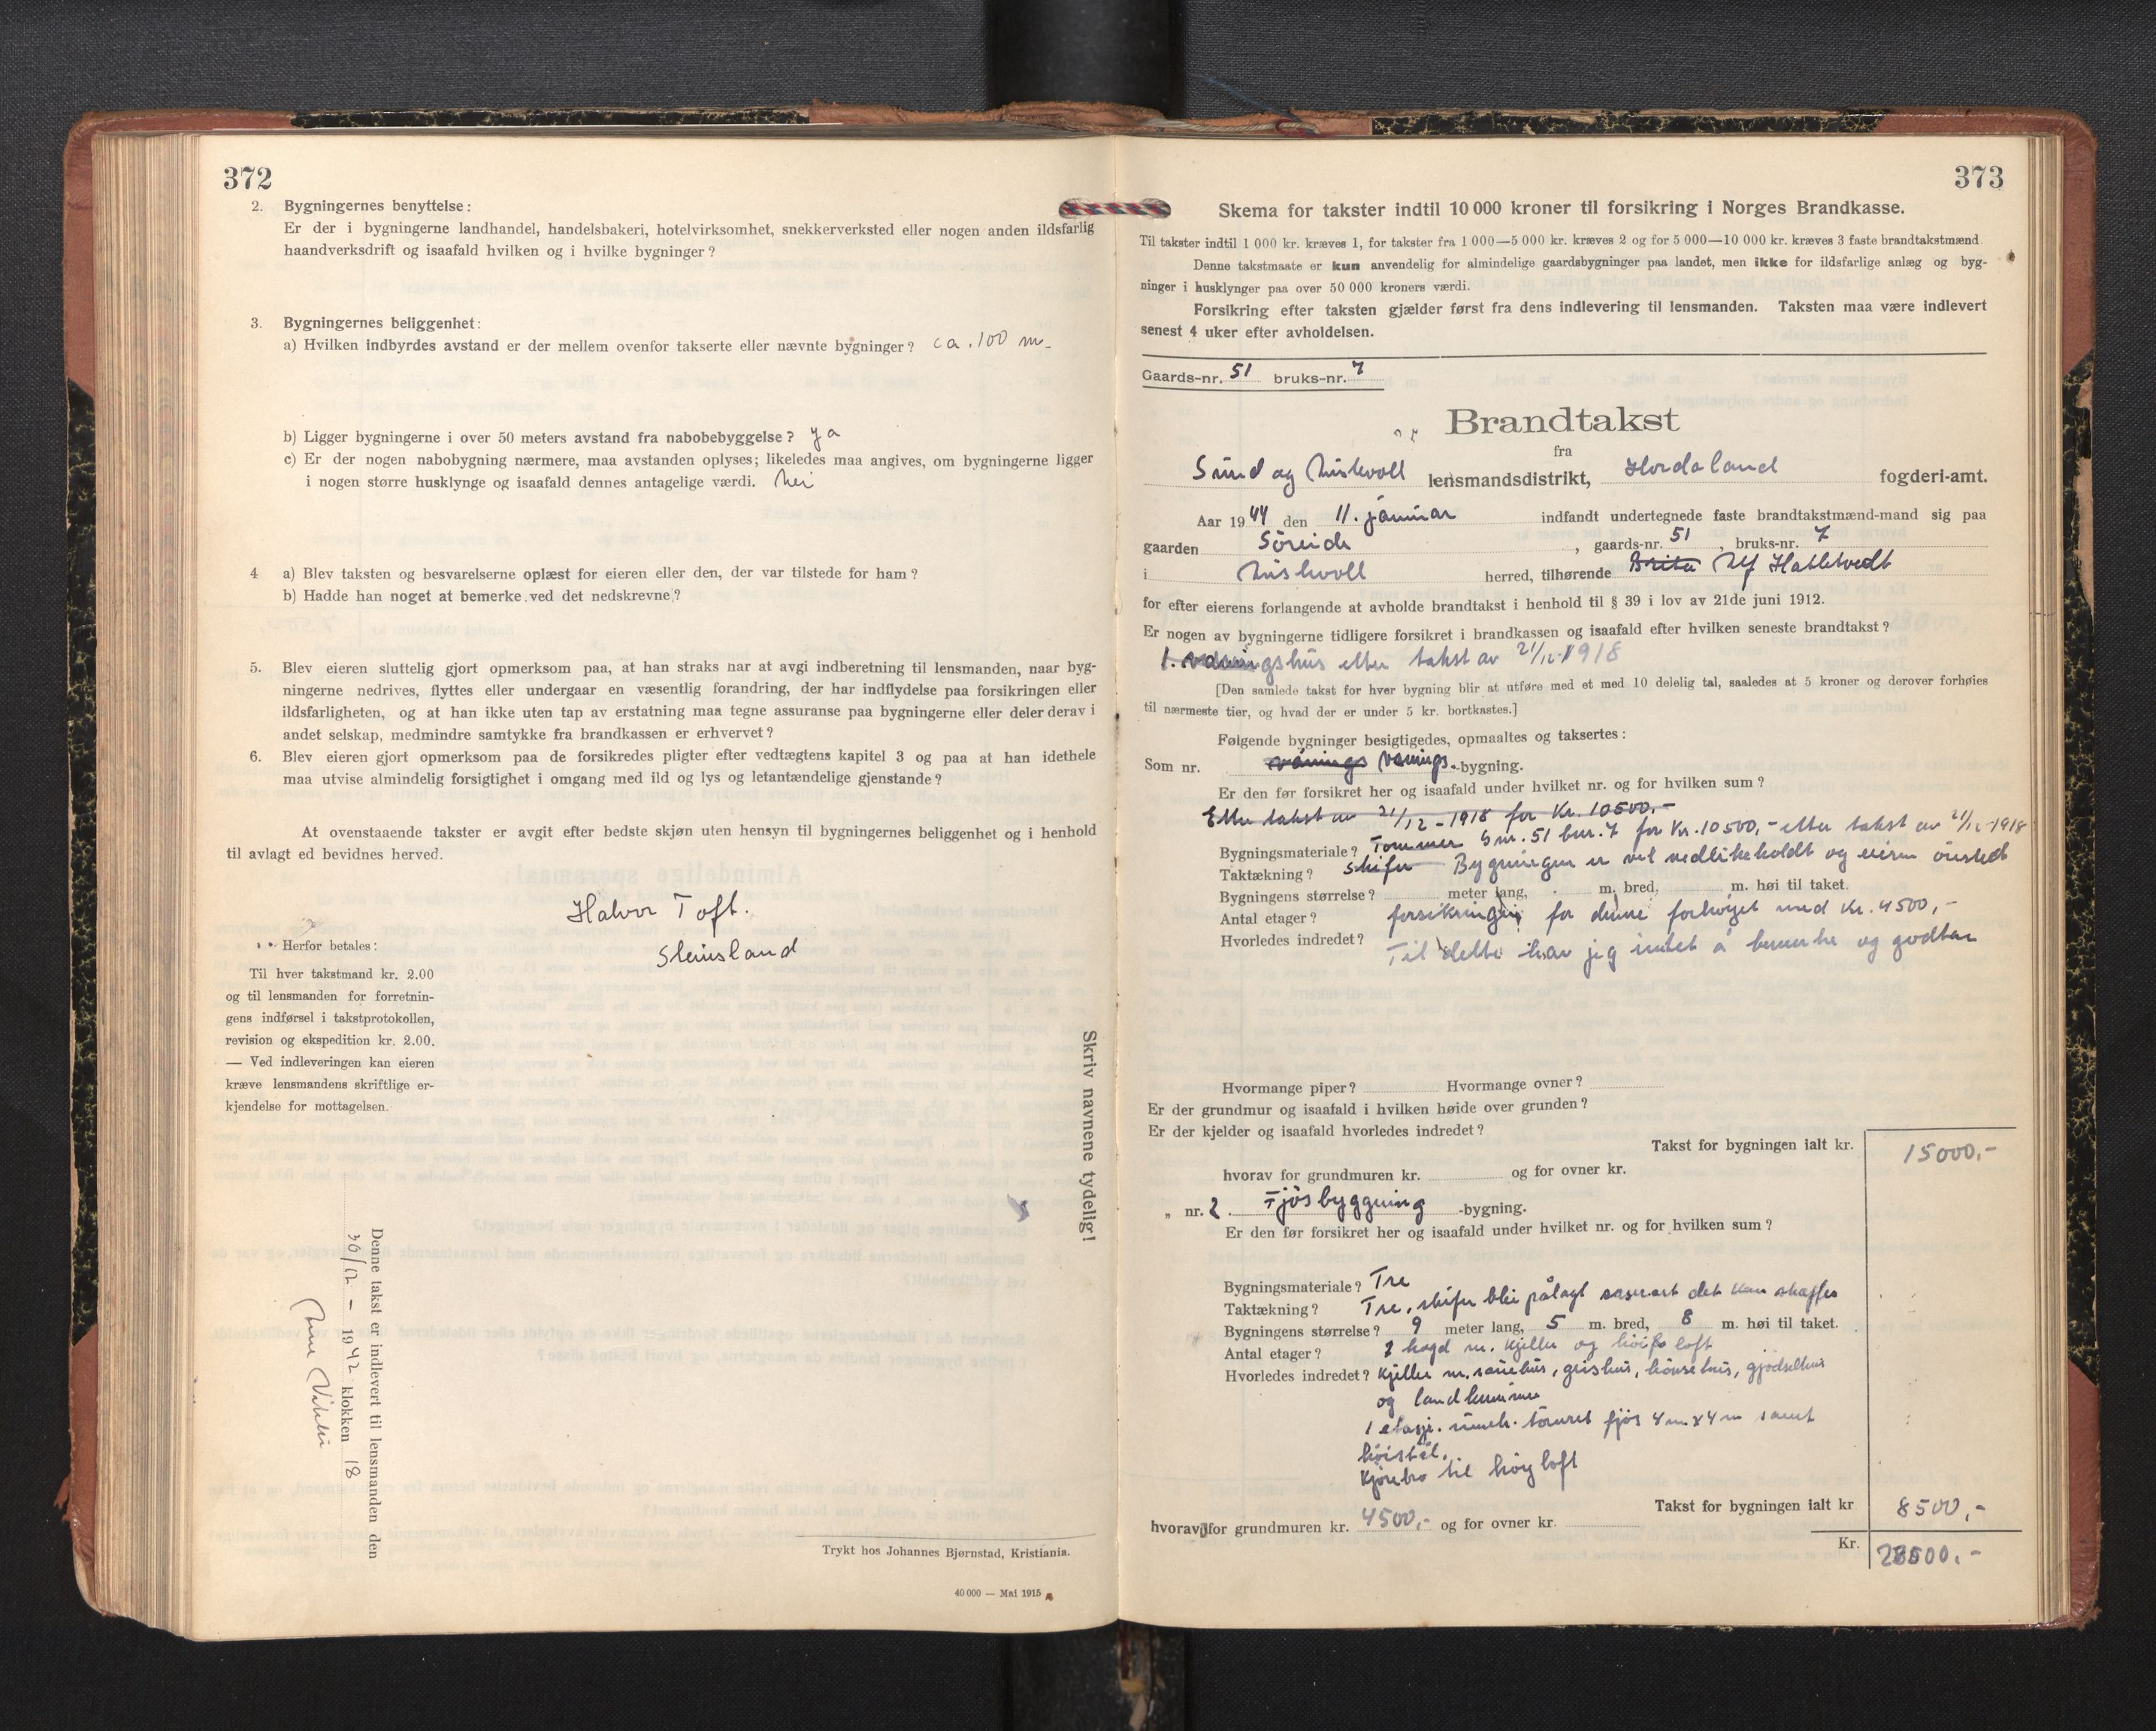 372
2. Bygningernes benyttelse:
Er der i bygningerne landhandel, handelsbakeri, hotelvirksomhet, snekkerverksted eller nogen anden ildsfarlig
haandverksdrift og isaafald hvilken og i hvilke bygninger?
3. Bygningernes beliggenhet:
a) Hvilken indbyrdes avstand er der mellem ovenfor takserte eller nævnte bygninger? ca. 100 m.
b) Ligger bygningerne i over 50 meters avstand fra nabobebyggelse? ja
c) Er der nogen nabobygning nærmere, maa avstanden oplyses; likeledes maa angives, om bygningerne ligger
i nogen større husklynge og isaafald dennes antagelige værdi. Nei
4 a) Blev taksten og besvarelserne oplæst for eieren eller den, der var tilstede for ham?
b) Hadde han noget at bemerke ved det nedskrevne?
5. Blev eieren sluttelig gjort opmerksom paa, at han straks nar at avgi indberetning til lensmanden, naar byg-
ningerne nedrives, flyttes eller undergaar en væsentlig forandring, der har indflydelse paa forsikringen eller
ildsfarligheten, og at han ikke uten tap av erstatning maa tegne assuranse paa bygningerne eller deler derav i
andet selskap, medmindre samtykke fra brandkassen er erhvervet?
6. Blev eieren gjort opmerksom paa de forsikredes pligter efter vedtægtens kapitel 3 og paa at han idethele
maa utvise almindelig forsigtighet i omgang med ild og lys og letantændelige gjenstande?
At ovenstaaende takster er avgit efter bedste skjøn uten hensyn til bygningernes beliggenhet og i henhold
til avlagt ed bevidnes herved.
Halvor Toft.
Steinsland
Herfor betales:
Til hver takstmand kr. 2.00
og til lensmanden for forretnin-
gens indførsel i takstprotokollen,
revision og ekspedition kr. 2.00.
— Ved indleveringen kan eieren
kræve lensmandens skriftlige er-
kjendelse for mottagelsen.
Skriv navnene tydelig!
Denne takst er indlevert til lensmanden den
30/12 - 1942 klokken 18
Trykt hos Johannes Bjørnstad, Kristiania.
40 000 — Mai 1915
373
Skema for takster indtil 10 000 kroner til forsikring i Norges Brandkasse.
Til takster indtil 1 000 kr. kræves 1, for takster fra 1 000—5 000 kr. kræves 2 og for 5 000—10 000 kr. kræves 3 faste brandtakstmænd.
Denne takstmaate er kun anvendelig for almindelige gaardsbygninger paa landet, men ikke for ildsfarlige anlæg og byg-
ninger i husklynger paa over 50 000 kroners værdi.
Forsikring efter taksten gjælder først fra dens indlevering til lensmanden. Taksten maa være indlevert
senest 4 uker efter avholdelsen.
Gaards-nr. 51 bruks-nr. 7
Brandtakst
fra
Sund og Austevoll lensmandsdistrikt, Hordaland fogderi-amt.
Aar 1944 den 11. januar indfandt undertegnede faste brandtakstmænd-mand sig paa
gaarden Söreide, gaards-nr. 51, bruks-nr. 7
i Austevoll herred, tilhørende Brita Alf Habletvedt
for efter eierens forlangende at avholde brandtakst i henhold til § 39 i lov av 21de juni 1912.
Er nogen av bygningerne tidligere forsikret i brandkassen og isaafald efter hvilken seneste brandtakst?
1. Våningshus etter takst av 21/12-1918
[Den samlede takst for hver bygning blir at utføre med et med 10 delelig tal, saaledes at 5 kroner og derover forhøies
til nærmeste tier, og hvad der er under 5 kr. bortkastes.]
Følgende bygninger besigtigedes, opmaaltes og taksertes:
Som nr. vånings Vånings-bygning.
Er den før forsikret her og isaafald under hvilket nr. og for hvilken sum?
Etter takst av 21/12-1918 for Kr. 10500,-
Bygningsmateriale? Tømmer G nr. 51 bnr. 7 for Kr. 10500,- etter takst av 21/12-1918
Taktækning? Skifer Bygningen er vel vedlikeholdt og eieren ønsket
Bygningens størrelse? meter lang, m. bred, m. høi til taket.
Antal etager? forsikringen for denne forhöyet med Kr. 4500,-
Hvorledes indredet? Til dette har jeg intet å bemerke og godtar
Hvormange piper? Hvormange ovner?
Er der grundmur og isaafald i hvilken høide over grunden?
Er der kjelder og isaafald hvorledes indredet?
Takst for bygningen ialt kr. 15000,-
hvorav for grundmuren kr. og for ovner kr.
„ nr. 2. Fjösbyggning -bygning.
Er den før forsikret her og isaafald under hvilket nr. og for hvilken sum?
Bygningsmateriale? Tre
Taktækning? Tre, skifer blir pålagt snarast det kan skaffes
Bygningens størrelse? 9 meter lang, 5 m. bred, 8 m. høi til taket.
Antal etager? 1 høgd m. kjeller og höiloft
Hvorledes indredet? Kjeller m. sauehus, grishus, hönsehus, gjödselhus
og landkummer
1 etasje. fjös 4 m x 4 m samt
höistål.
Kjørebro til höyloft
Takst for bygningen ialt kr 8500,-
hvorav for grundmuren kr. 4500,- og for ovner kr.
Kr. 23500,-